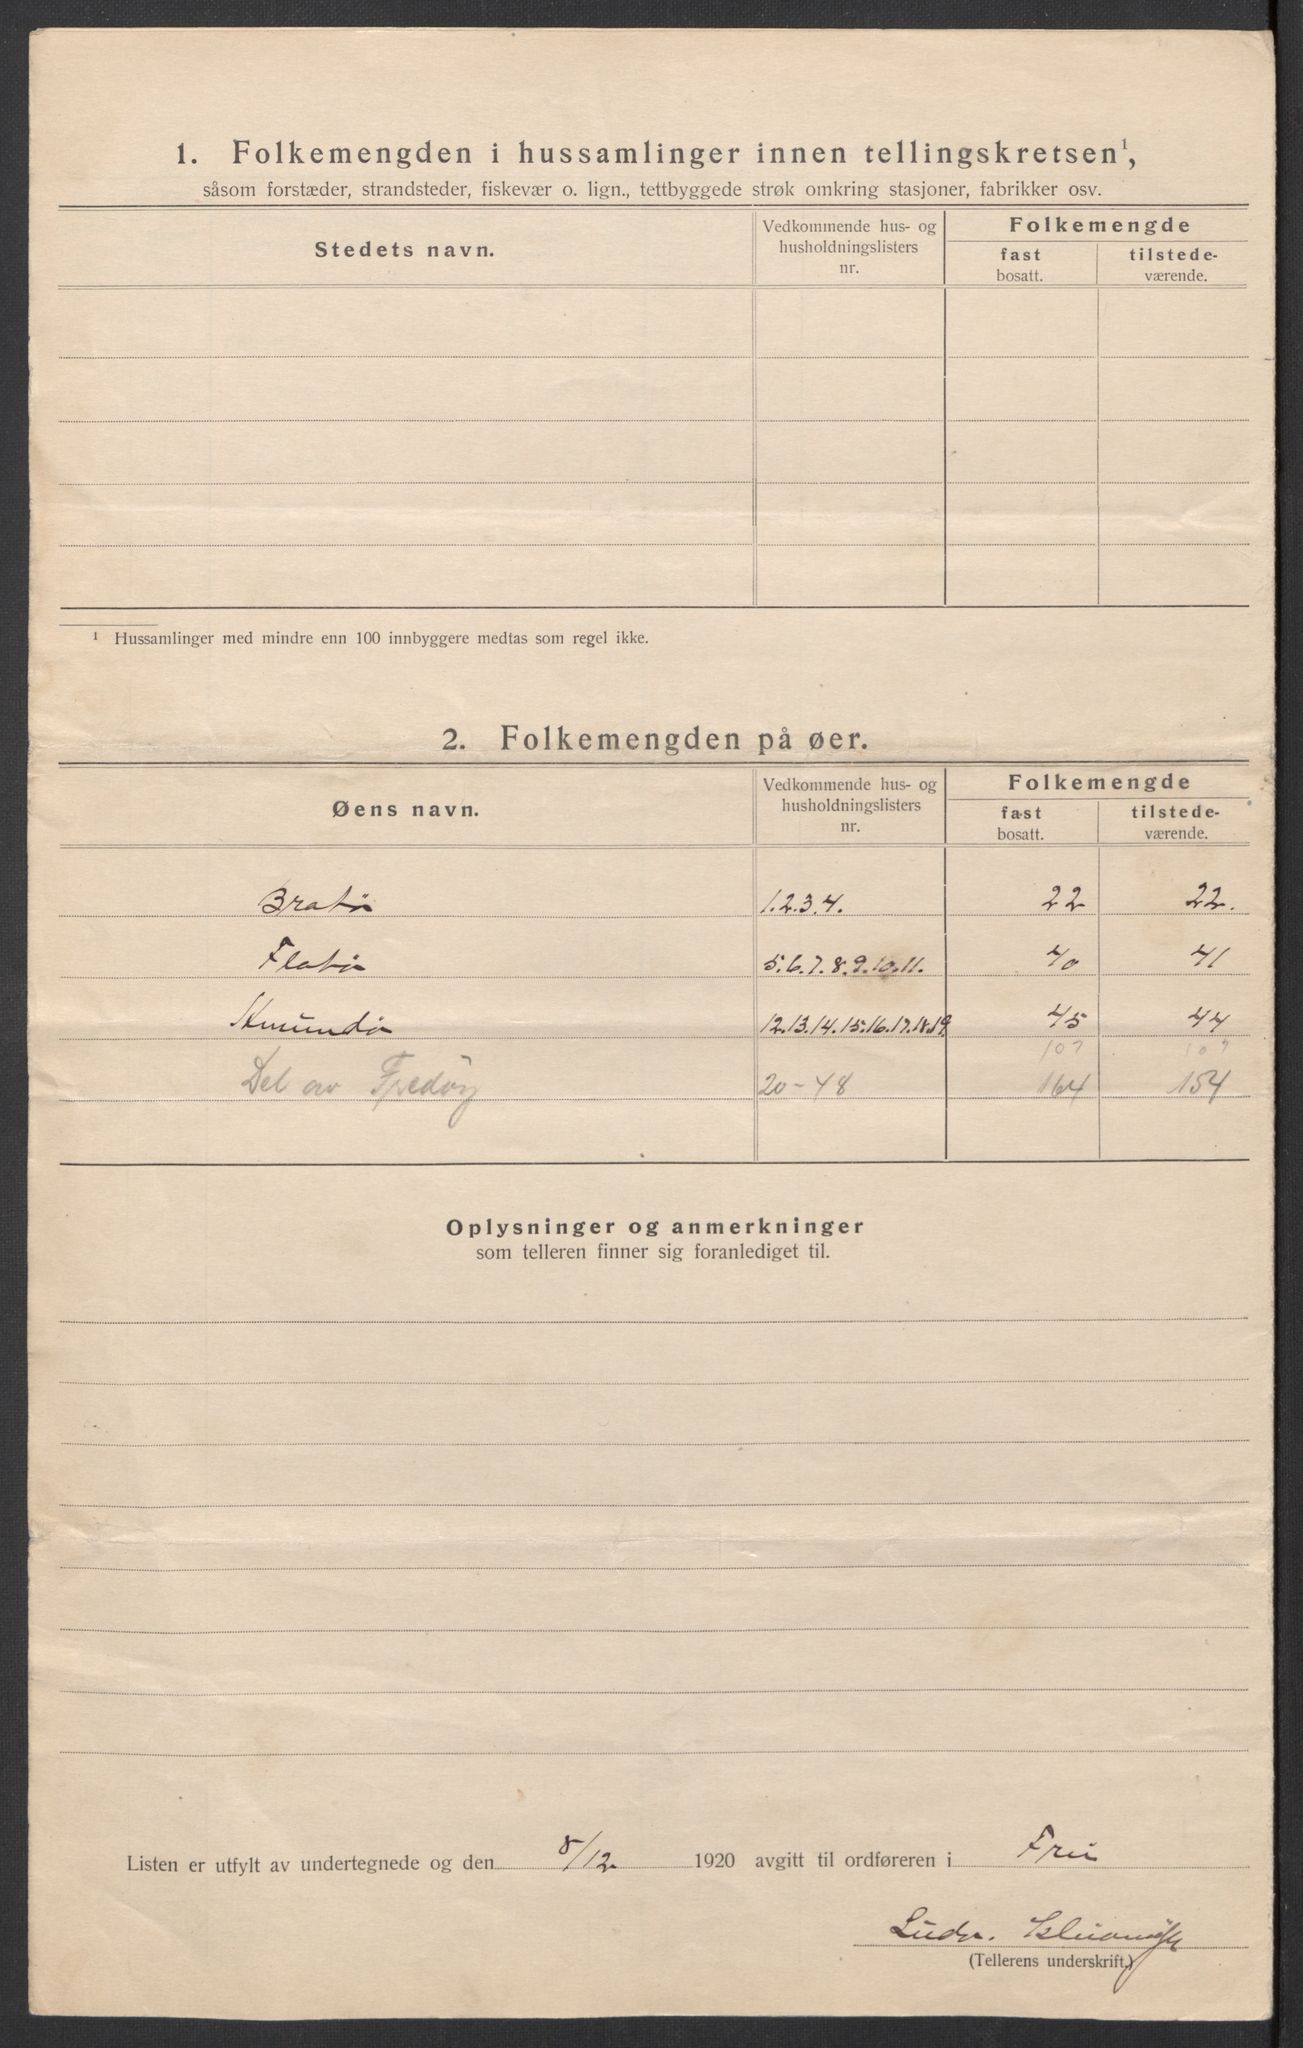 1. Folkemengden i hussamlinger innen tellingskretsen¹,
såsom forstæder, strandsteder, fiskevær o. lign., tettbyggede strøk omkring stasjoner, fabrikker osv.
Stedets navn.
Vedkommende hus- og husholdningslisters nr.
Folkemengde
fast bosatt.
tilstedeværende.
¹ Hussamlinger med mindre enn 100 innbyggere medtas som regel ikke.
2. Folkemengden på øer.
Øens navn.
Vedkommende hus- og husholdningslisters nr.
Folkemengde
fast bosatt.
tilstedeværende.
Bratø 1.2.3.4. 22 22.
Flatø 5.6.7.8.9.10.11. 40 41
12.13.14.15.16.17.18.19. 45 44
107 107
Del av 20-48 164 154
Oplysninger og anmerkninger
som telleren finner sig foranlediget til.
Listen er utfylt av undertegnede og den 8/12 1920 avgitt til ordføreren i Frei
Ludv.
(Tellerens underskrift.)